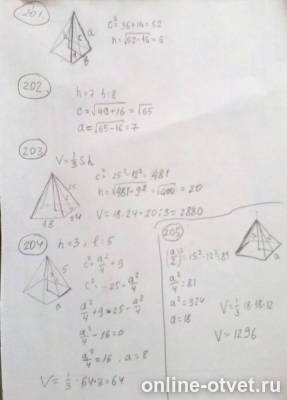 201.
c² = 36+14 = 52
h = √52-16 = 6
202.
h=7 b=8
c = √49+16 = √65
a = √65-16 = 7
203
V = 1/3 Sh
c² = 25²-12² = 481
h = √481-9² = √400 = 20
V = 18·24·20:3 = 2880
25
18
24
204
h=3, l=5
5
a
c² = a²/4 + 9
c² = 25 - a²/4
a²/4 + 9 = 25 - a²/4
a²/4 - 16 = 0
a²/4 = 16, a = 8
V = 1/3 · 64·3 = 64
205
(a/2)² = 15²-12² = 81
a²/4 = 81
a² = 324
a = 18
V = 1/3 · 18·18·12
V = 1296
a
online-otvet.ru